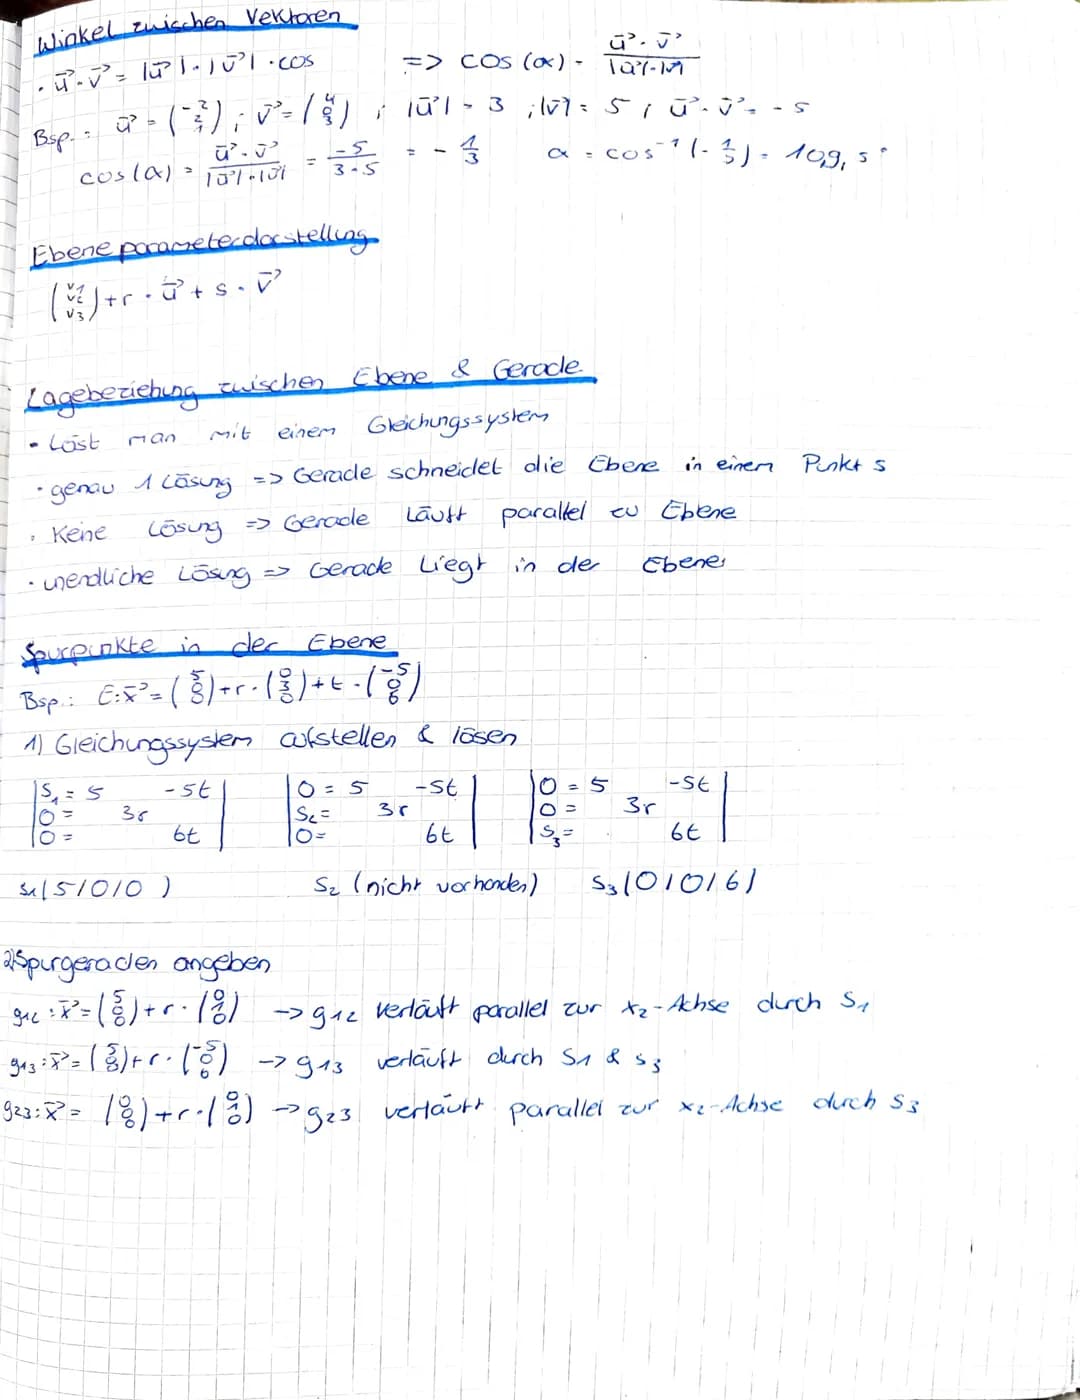 Winkel zwischen Vektoren
· u⃗ · v⃗ = |u⃗| · |v⃗| · cos => cos (α) = u⃗ · v⃗ / |u⃗| · |v⃗|
Bsp.: u⃗ = (-2 2 1) ; v⃗ = (4 0 3) ; |u⃗| = 3 ; |v⃗| = 5 ; u⃗ · v⃗ = -5
cos(α) = u⃗ · v⃗ / |u⃗| · |v⃗| = -5 / 3·5 = - 1/3 α = cos⁻¹(- 1/3) = 109,5°
Ebene parameterdarstellung
(v1 v2 v3) + r · u⃗ + s · v⃗
Lagebeziehung zwischen Ebene & Gerade
· Löst man mit einem Gleichungssystem
· genau 1 Lösung => Gerade schneidet die Ebene in einem Punkt S
· Keine Lösung => Gerade Läuft parallel zu Ebene
· unendliche Lösung => Gerade Liegt in der Ebene
Spurpunkte in der Ebene
Bsp.: E: x⃗ = (5 0 0) + r · (0 3 0) + t · (-5 0 6)
1) Gleichungssystem aufstellen & lösen
|S1 = 5 -5t| |0 = 5 -5t| |0 = 5 -5t|
|0 = 3r| |S2 = 3r| |0 = 3r|
|0 = 6t| |0 = 6t| |S3 = 6t|
S1(5/0/0) S2 (nicht vorhanden) S3(0/0/6)
2) Spurgeraden angeben
g12 : x⃗ = (5 0 0) + r · (0 1 0) -> g12 verläuft parallel zur x2-Achse durch S1
g13 : x⃗ = (5 0 0) + r · (-5 0 6) -> g13 verläuft durch S1 & S3
g23 : x⃗ = (0 0 6) + r · (0 1 0) -> g23 verläuft parallel zur x2-Achse durch S3